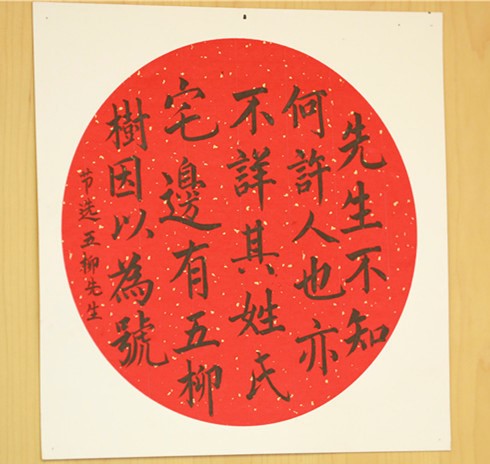 先生不知
何許人也亦
不詳其姓氏
宅邊有五柳
樹因以為號
节选五柳先生